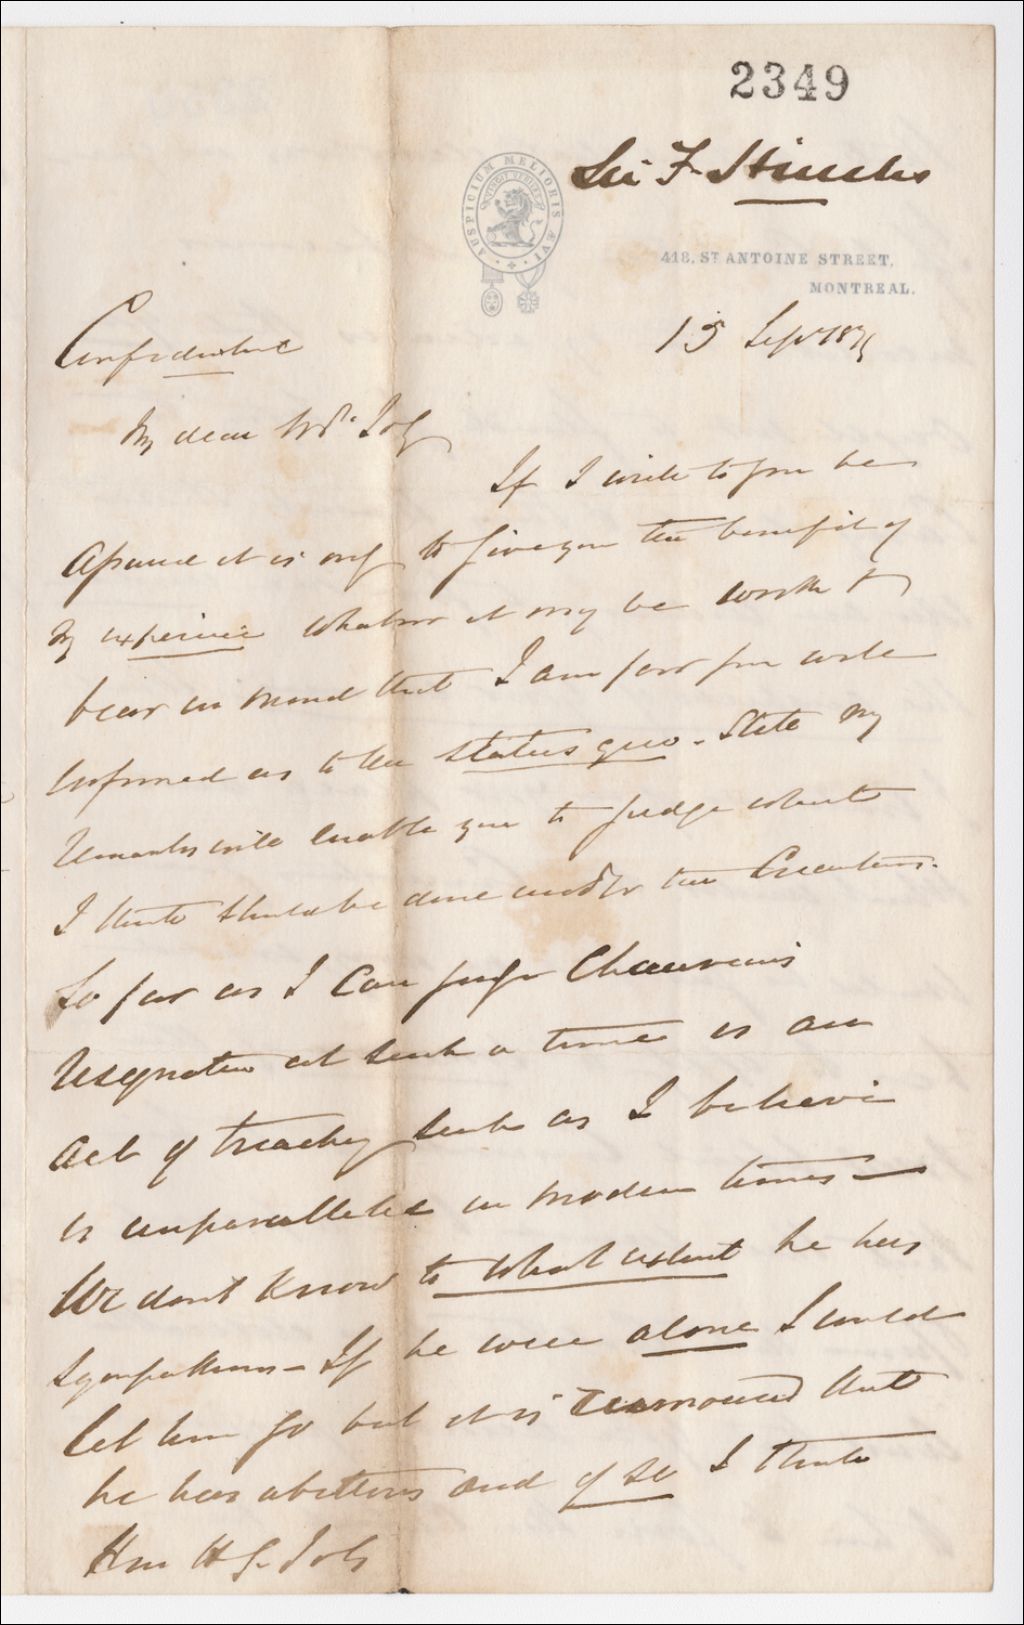 2349
Sir F. Hincks
AUSPICIUM MELIORIS ÆVI
418, ST ANTOINE STREET,
MONTREAL.
15 Sept 1879
Confidential
My dear Mr. Joly
If I write to you be
assured it is only to give you the benefit of
my experience whatever it may be worth &
bear in mind that I am far from well
informed as to the status quo. State my
remarks will enable you to judge what
I think should be done under the circumstances.
So far as I can judge Chauveau's
resignation at such a time is an
act of treachery such as I believe
is unparalleled in modern times —
We dont know to what extent he has
sympathisers — If he were alone I would
let him go but it is rumoured that
he has abettors and if so I think
Hon H G Joly